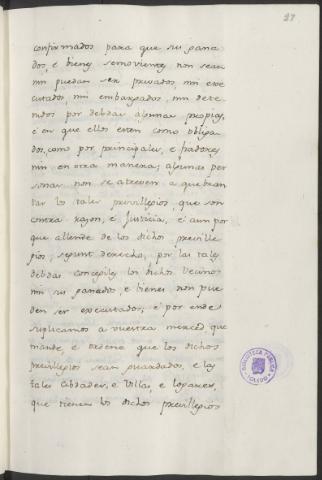 27
confirmados para que sus gana
dos, e bienes semovientes non sean
nin puedan ser privados, nin exe
cutados, nin embargados, nin dete
nidos por debdas algunas propias,
é en que ellos esten como obliga
dos, como por principales, e fiadores,
nin en otra manera; algunas per
sonas non se atreven a quebran
tar los tales previllegios, que son
contra razon, e Justicia, é aun por
que allende de los dichos preville
gios, segunt derecho, por las tales
debdas concegiles los dichos Vecinos
nin sus ganados, e bienes non pue
den ser executados; é por ende
suplicamos a vuestra merced que
mande, e ordene que los dichos
previllegios sean guardados, e las
tales Cibdades, e Villas, e logares,
que tienen los dichos previllegios
BIBLIOTECA PUBLICA
TOLEDO